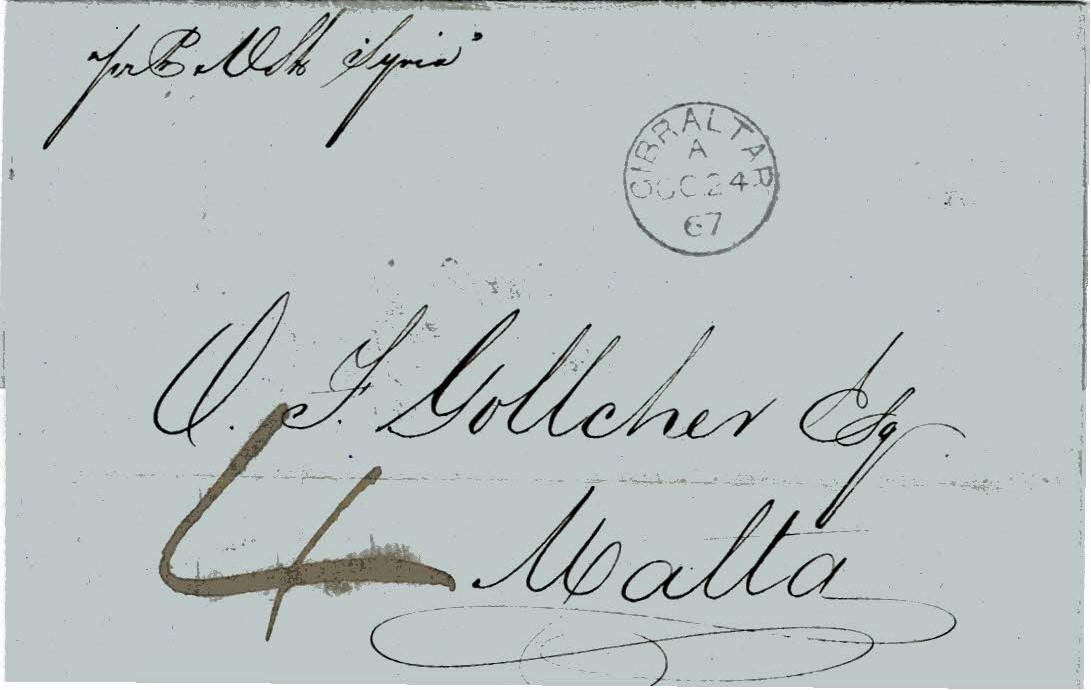 per R. M. St. "Syria"
GIBRALTAR
A
OC 24
67
O. F. Gollcher Esq
4
Malta